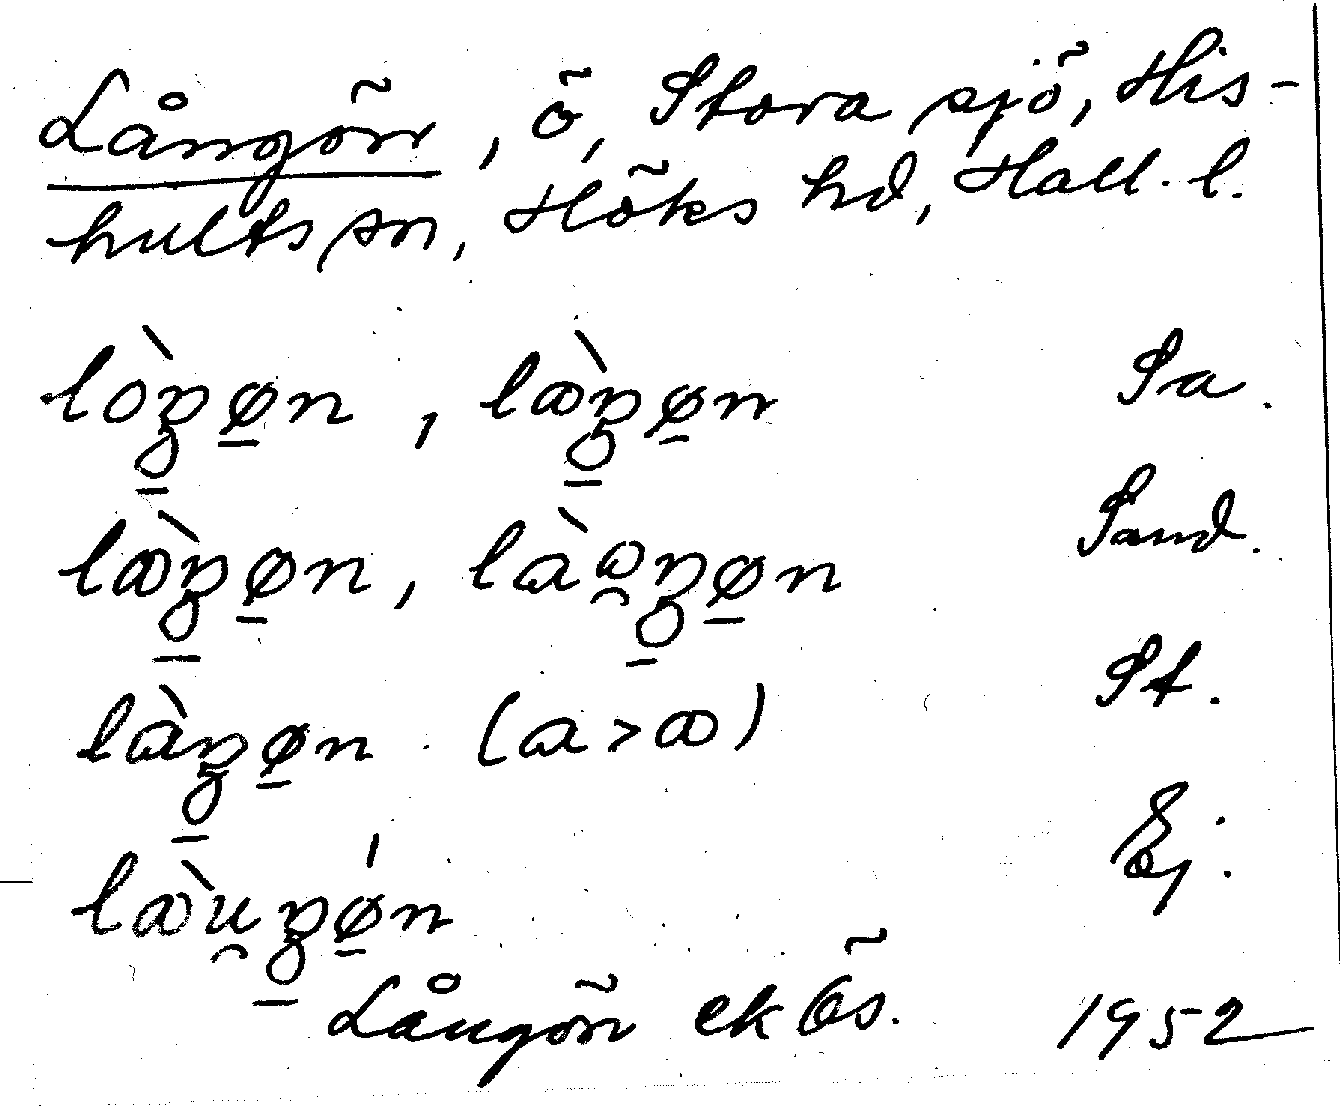 Långön, ö, Stora sjö, His-
hults sn, Höks hd, Hall. l.
lòŋø̠n, lɑ̀ŋø̠n Sa.
lɑ̀ŋø̠n, làɑ̯ŋø̠n Sand.
làŋø̠n (a>ɑ) St.
lɑ̀u̯ŋǿ̠n Ej.
Långön ek Ös. 1952